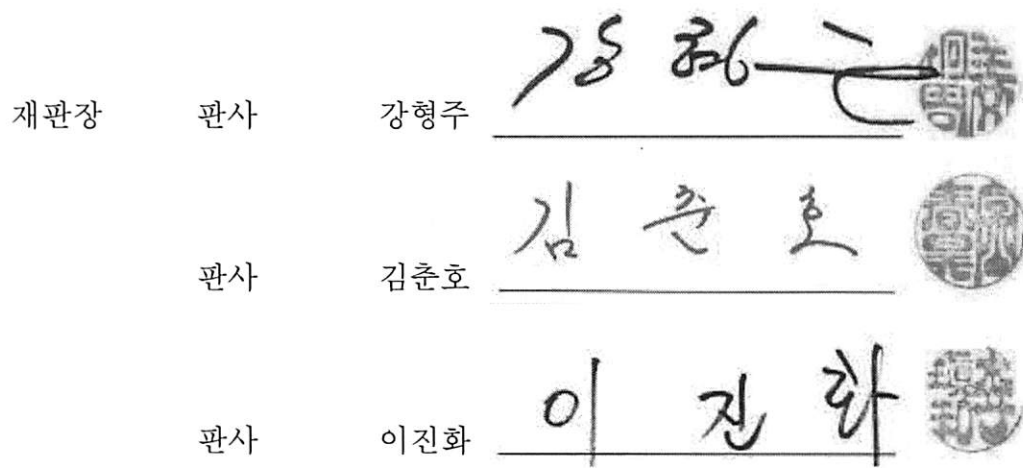 재판장 판사 강형주 강형주
판사 김춘호 김춘호
판사 이진화 이진화